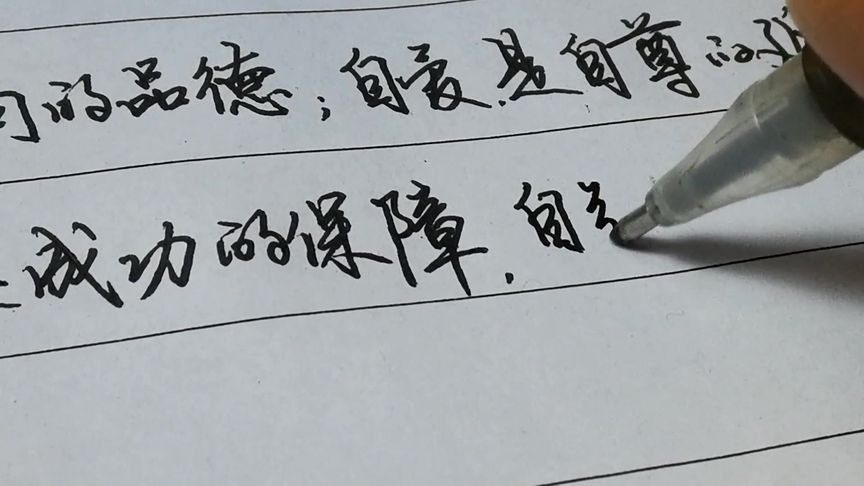 的品德；自爱是自尊的
成功的保障，自